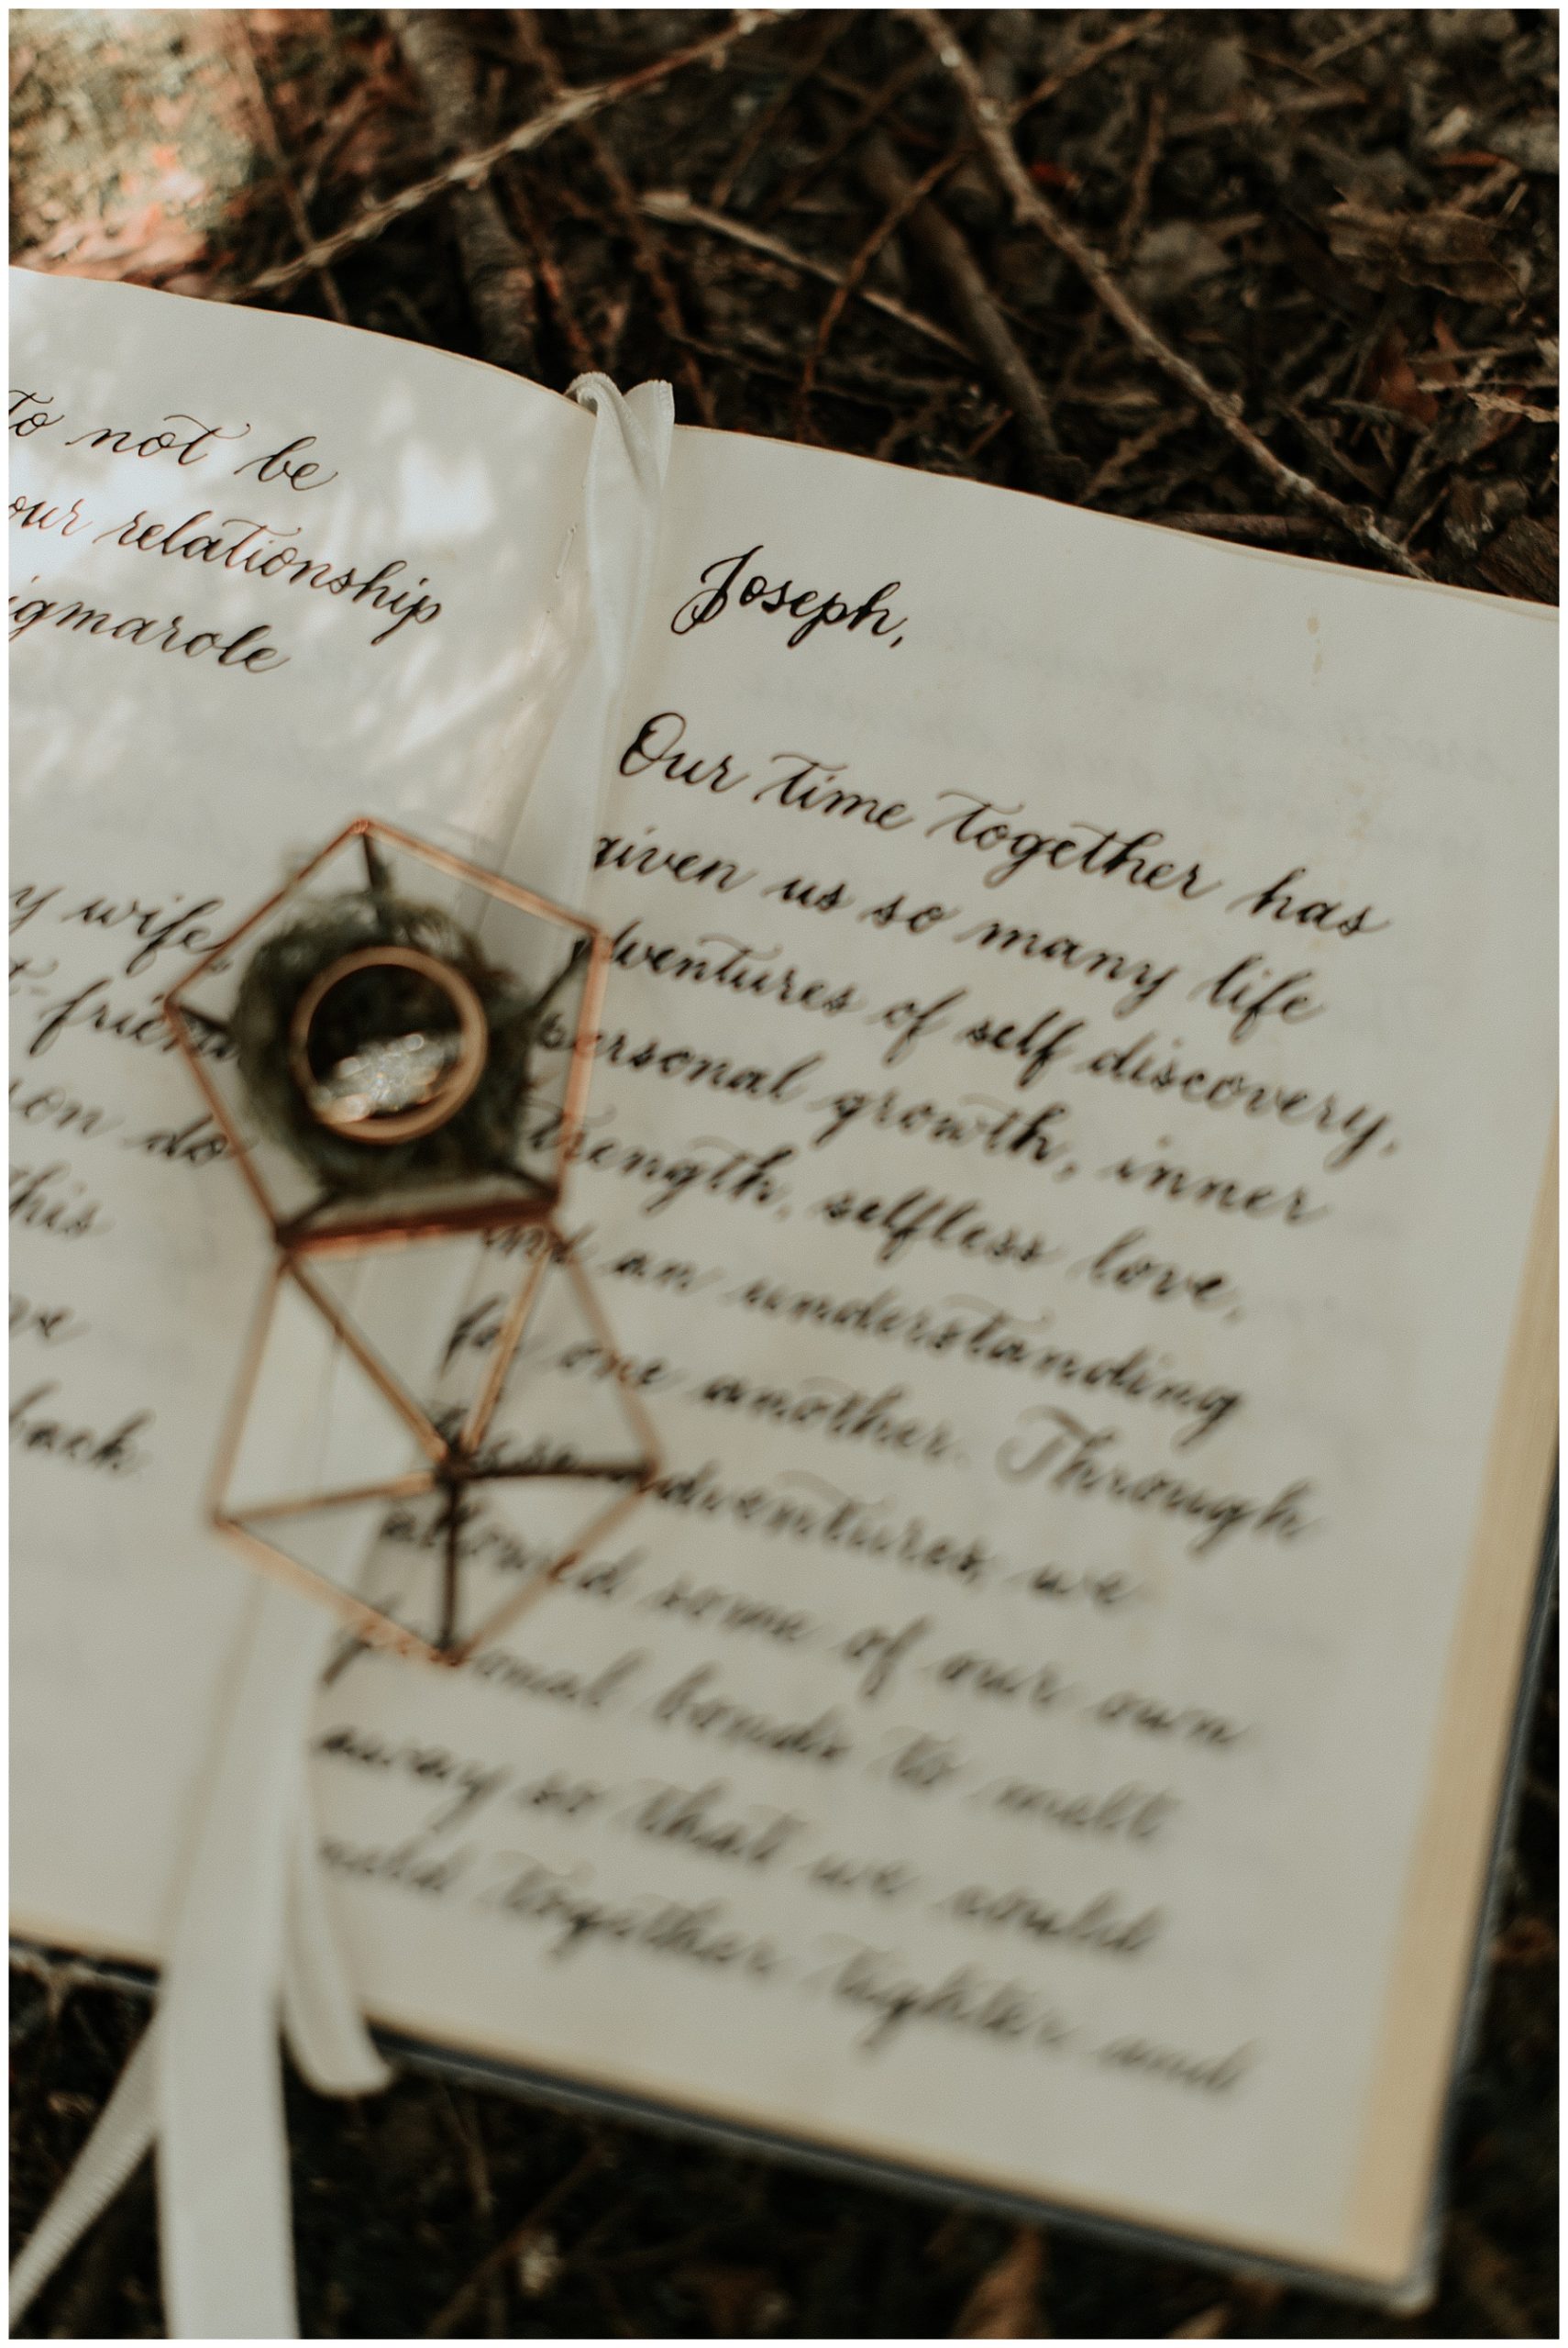 To not be
our relationship
igmarole
y wife,
t-friend
on do
this
ve
back
Joseph,
Our time together has
given us so many life
adventures of self discovery,
personal growth, inner
strength, selfless love,
and an understanding
for one another. Through
these adventures, we
allowed some of our own
personal bonds to melt
away so that we could
meld together tighter and